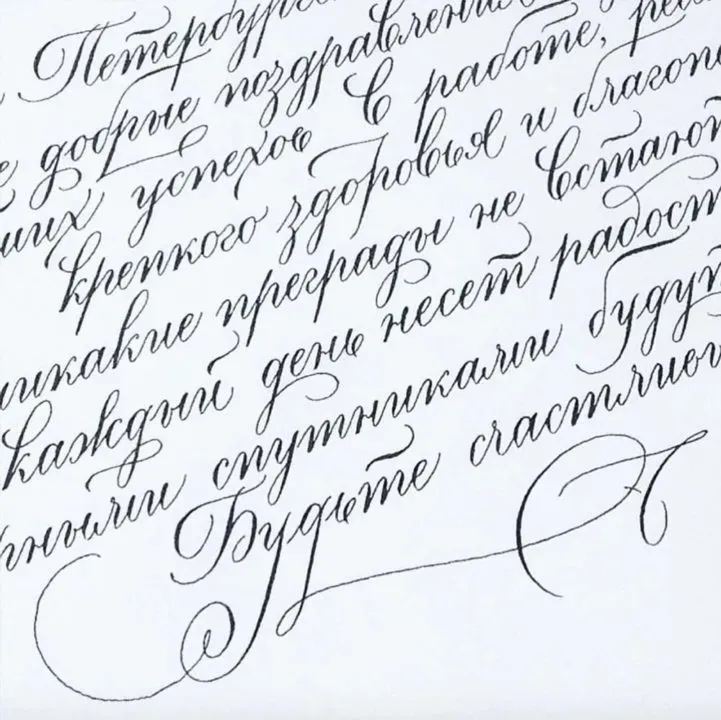 Петербург
добрые поздравлени
ших успехов в работе, ре
крепкого здоровья и благопо
никакие преграды не встают
каждый день несет радост
ными спутниками будут
Будьте счастливы